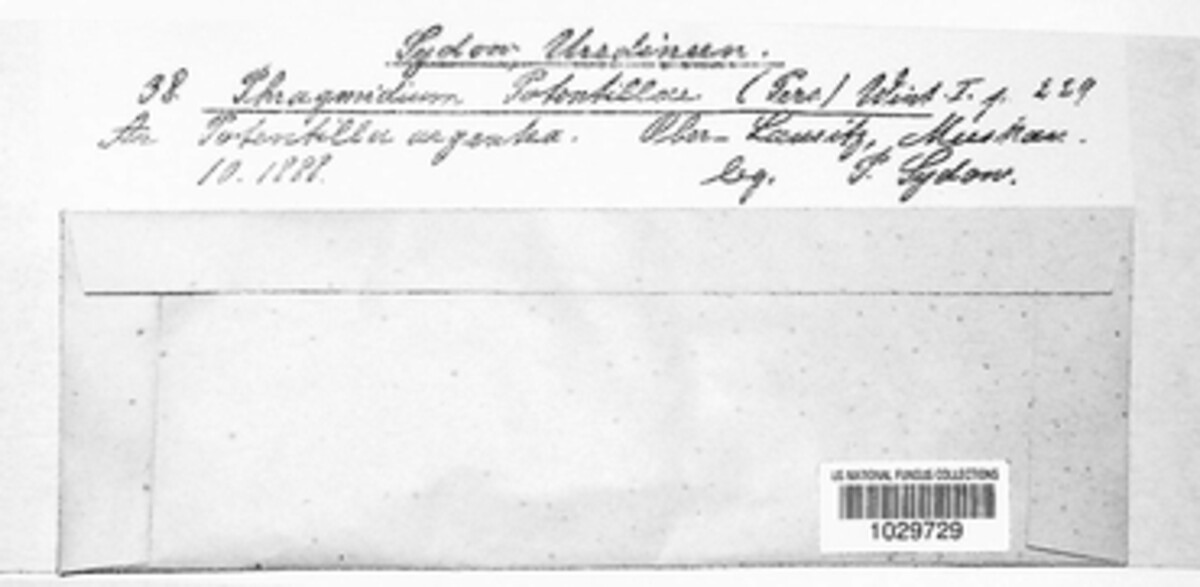 Sydow, Uredineen.
38. Phragmidium Potentillae (Pers.) Wint. I. p. 229
An Potentilla argentea. Ober-Lausitz, Muskau.
10. 1888. leg. P. Sydow.
US NATIONAL FUNGUS COLLECTIONS
1029729